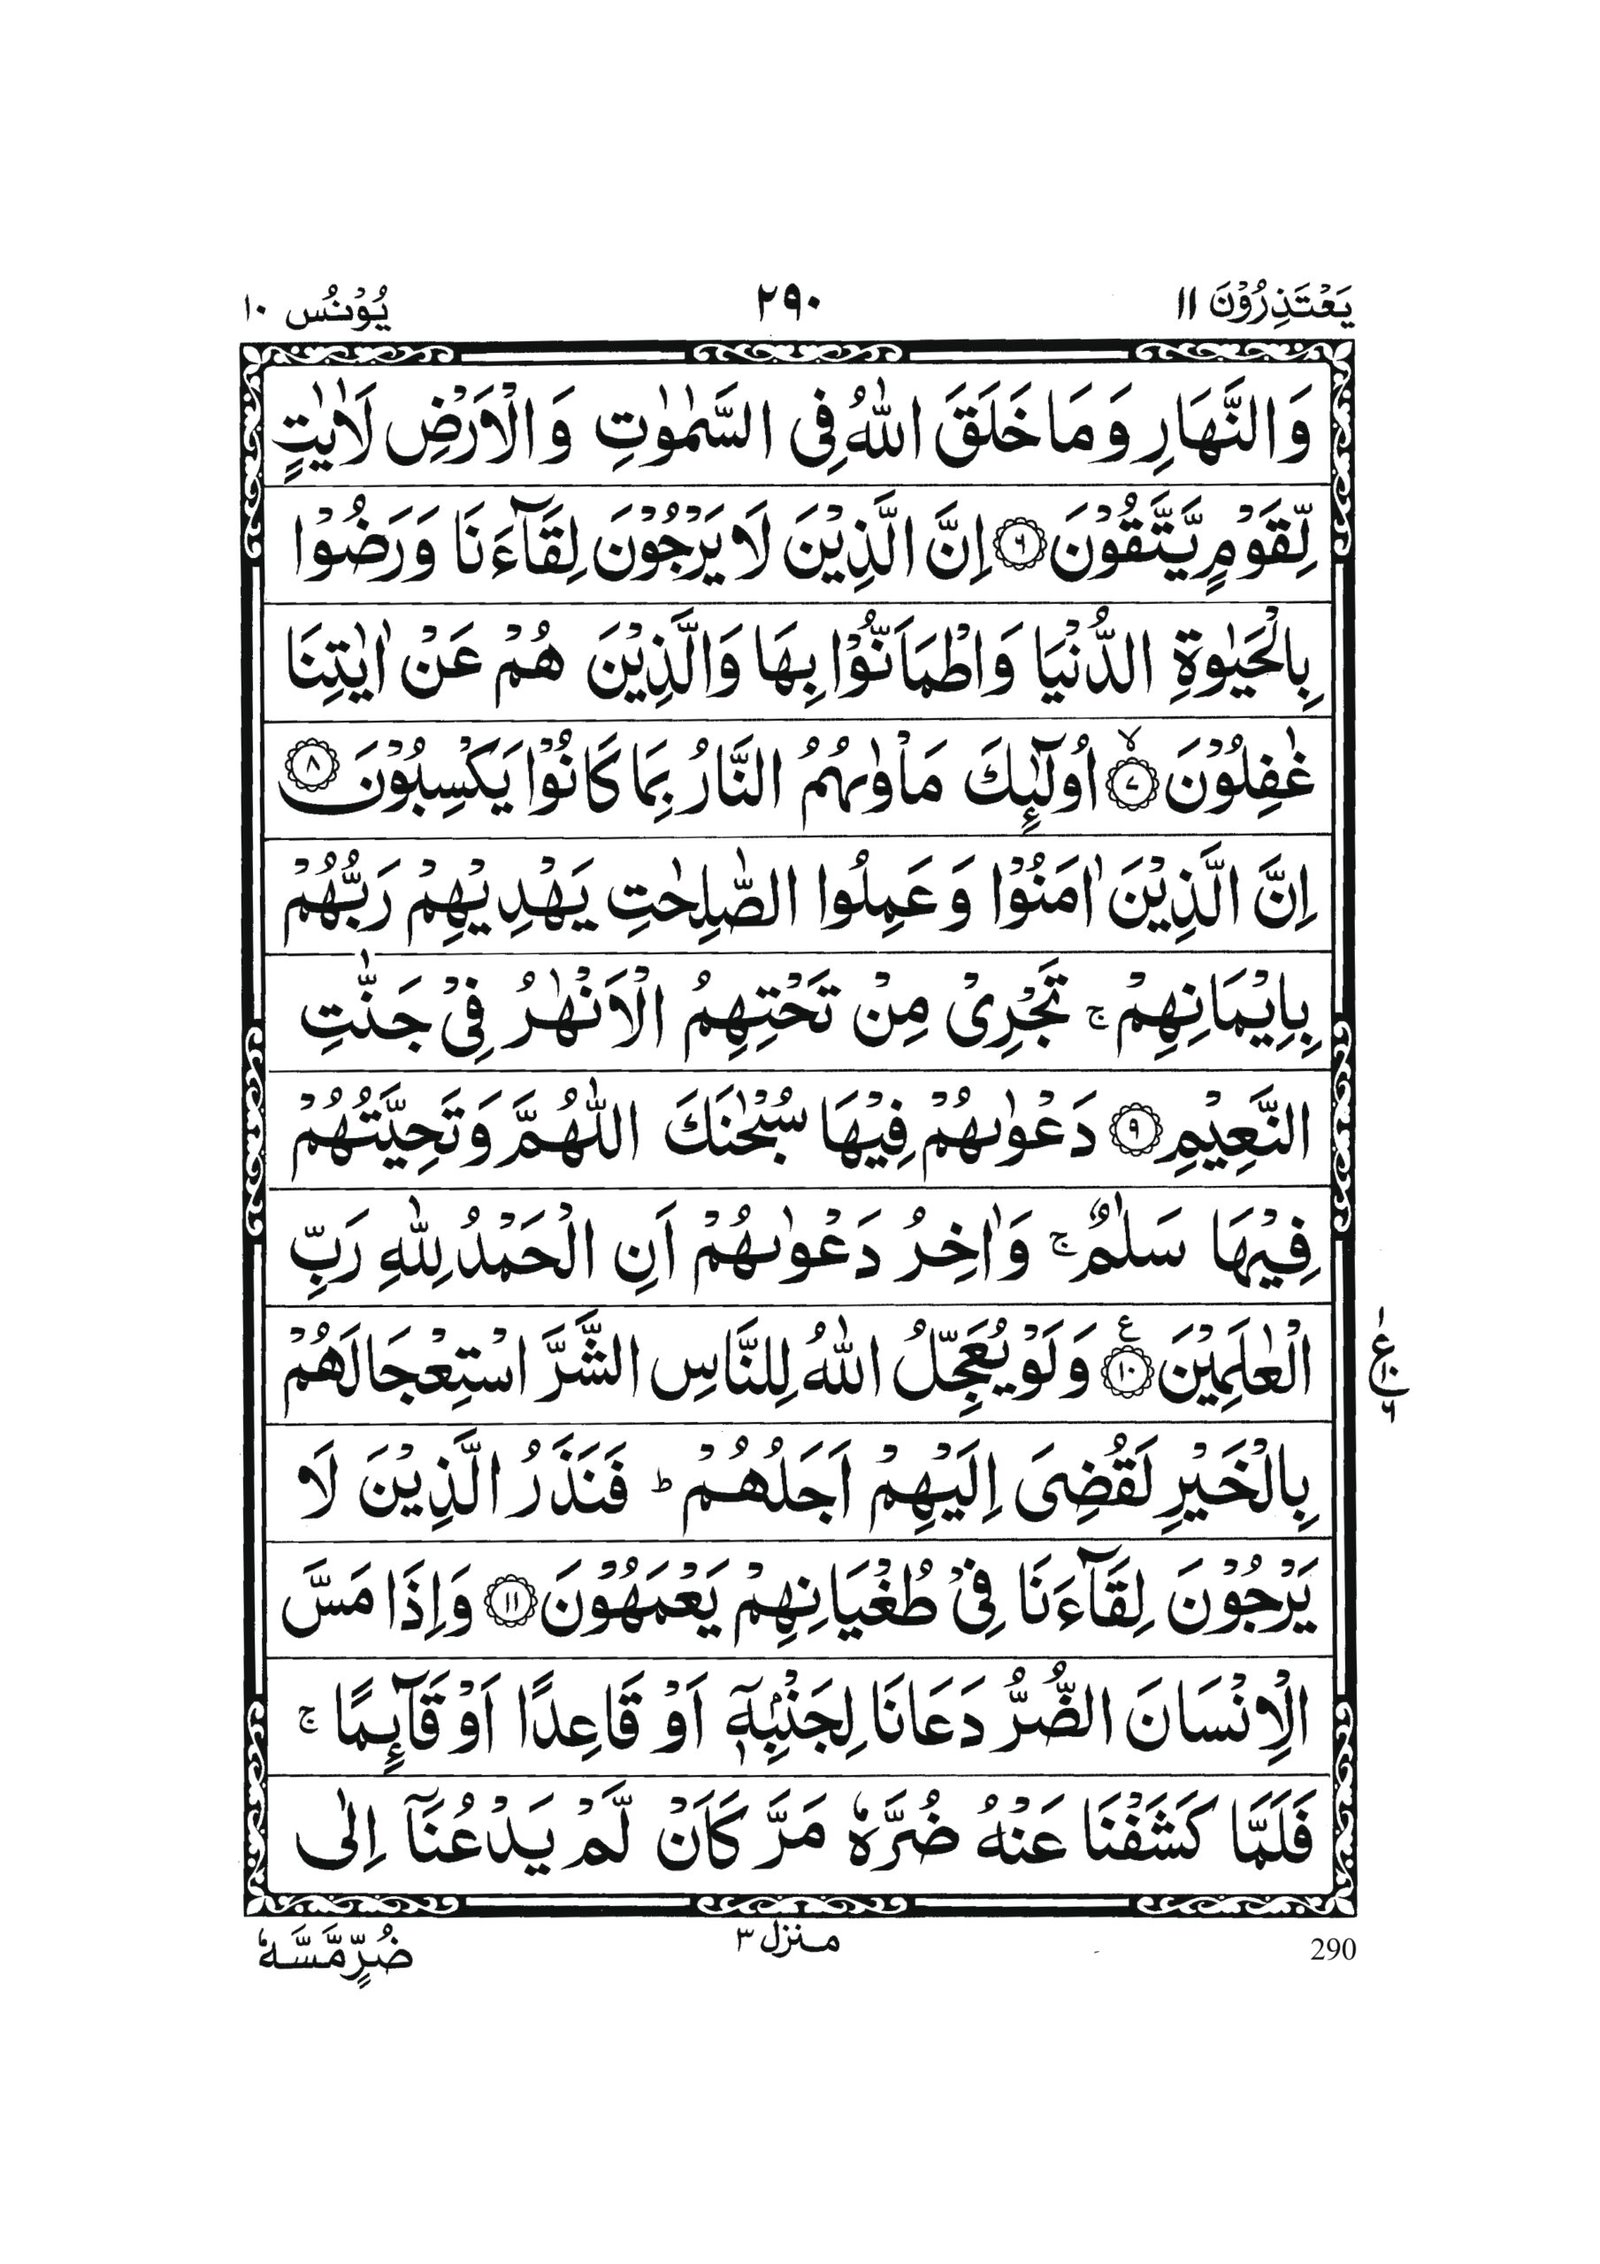 يَعْتَذِرُوْنَ ١١ ٢٩٠ يُوْنُس ١٠
وَالنَّهَارِ وَمَا خَلَقَ اللّٰهُ فِى السَّمٰوٰتِ وَالْاَرْضِ لَاٰيٰتٍ
لِّقَوْمٍ يَّتَّقُوْنَ ﴿٦﴾ اِنَّ الَّذِيْنَ لَا يَرْجُوْنَ لِقَآءَنَا وَرَضُوْا
بِالْحَيٰوةِ الدُّنْيَا وَاطْمَاَنُّوْا بِهَا وَالَّذِيْنَ هُمْ عَنْ اٰيٰتِنَا
غٰفِلُوْنَ ﴿٧﴾ۙ اُولٰٓئِكَ مَاْوٰىهُمُ النَّارُ بِمَا كَانُوْا يَكْسِبُوْنَ ﴿٨﴾
اِنَّ الَّذِيْنَ اٰمَنُوْا وَعَمِلُوا الصّٰلِحٰتِ يَهْدِيْهِمْ رَبُّهُمْ
بِاِيْمَانِهِمْ ۚ تَجْرِىْ مِنْ تَحْتِهِمُ الْاَنْهٰرُ فِىْ جَنّٰتِ
النَّعِيْمِ ﴿٩﴾ دَعْوٰىهُمْ فِيْهَا سُبْحٰنَكَ اللّٰهُمَّ وَتَحِيَّتُهُمْ
فِيْهَا سَلٰمٌ ۚ وَاٰخِرُ دَعْوٰىهُمْ اَنِ الْحَمْدُ لِلّٰهِ رَبِّ
الْعٰلَمِيْنَ ﴿١٠﴾ ع وَلَوْ يُعَجِّلُ اللّٰهُ لِلنَّاسِ الشَّرَّ اسْتِعْجَالَهُمْ
١ ع ١٠ ٦
بِالْخَيْرِ لَقُضِىَ اِلَيْهِمْ اَجَلُهُمْ ؕ فَنَذَرُ الَّذِيْنَ لَا
يَرْجُوْنَ لِقَآءَنَا فِىْ طُغْيَانِهِمْ يَعْمَهُوْنَ ﴿١١﴾ وَاِذَا مَسَّ
الْاِنْسَانَ الضُّرُّ دَعَانَا لِجَنْۢبِهٖۤ اَوْ قَاعِدًا اَوْ قَآئِمًا ۚ
فَلَمَّا كَشَفْنَا عَنْهُ ضُرَّهٗ مَرَّ كَاَنْ لَّمْ يَدْعُنَاۤ اِلٰى
ضُرٍّ مَّسَّهٗ
منزل ٣
290